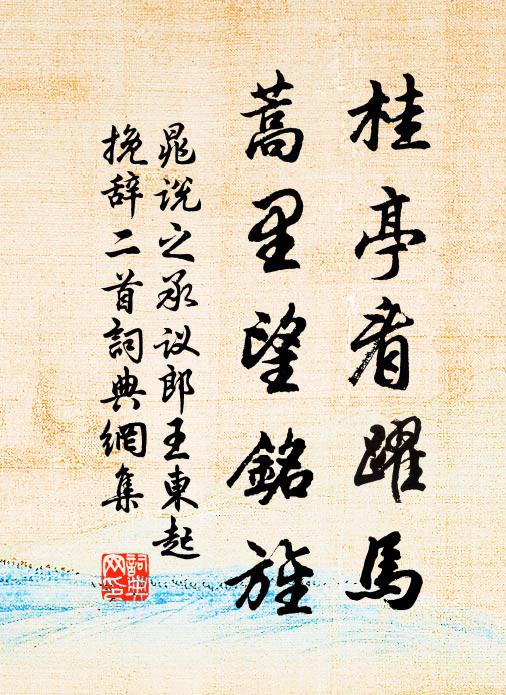 桂亭看躍馬
蒿里望銘旌
晁说之承议郎王東起
挽辞二首詞典網集
詞典网印